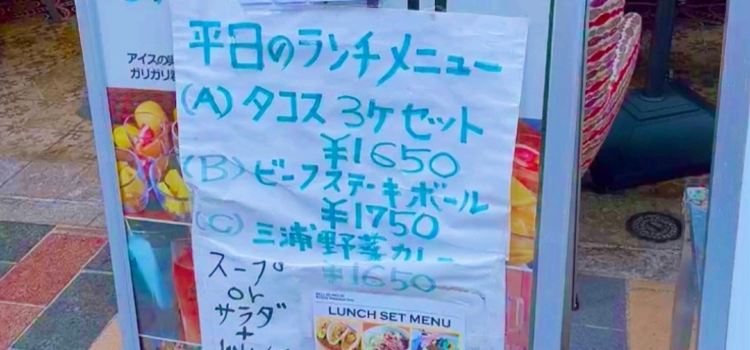 平日のランチメニュー
アイスの
ガリガリ
(A) タコス 3ケセット
¥1650
(B) ビーフステーキボール
¥1750
(C) 三浦野菜カレー
¥1650
スープ
or
サラダ
+
LUNCH SET MENU